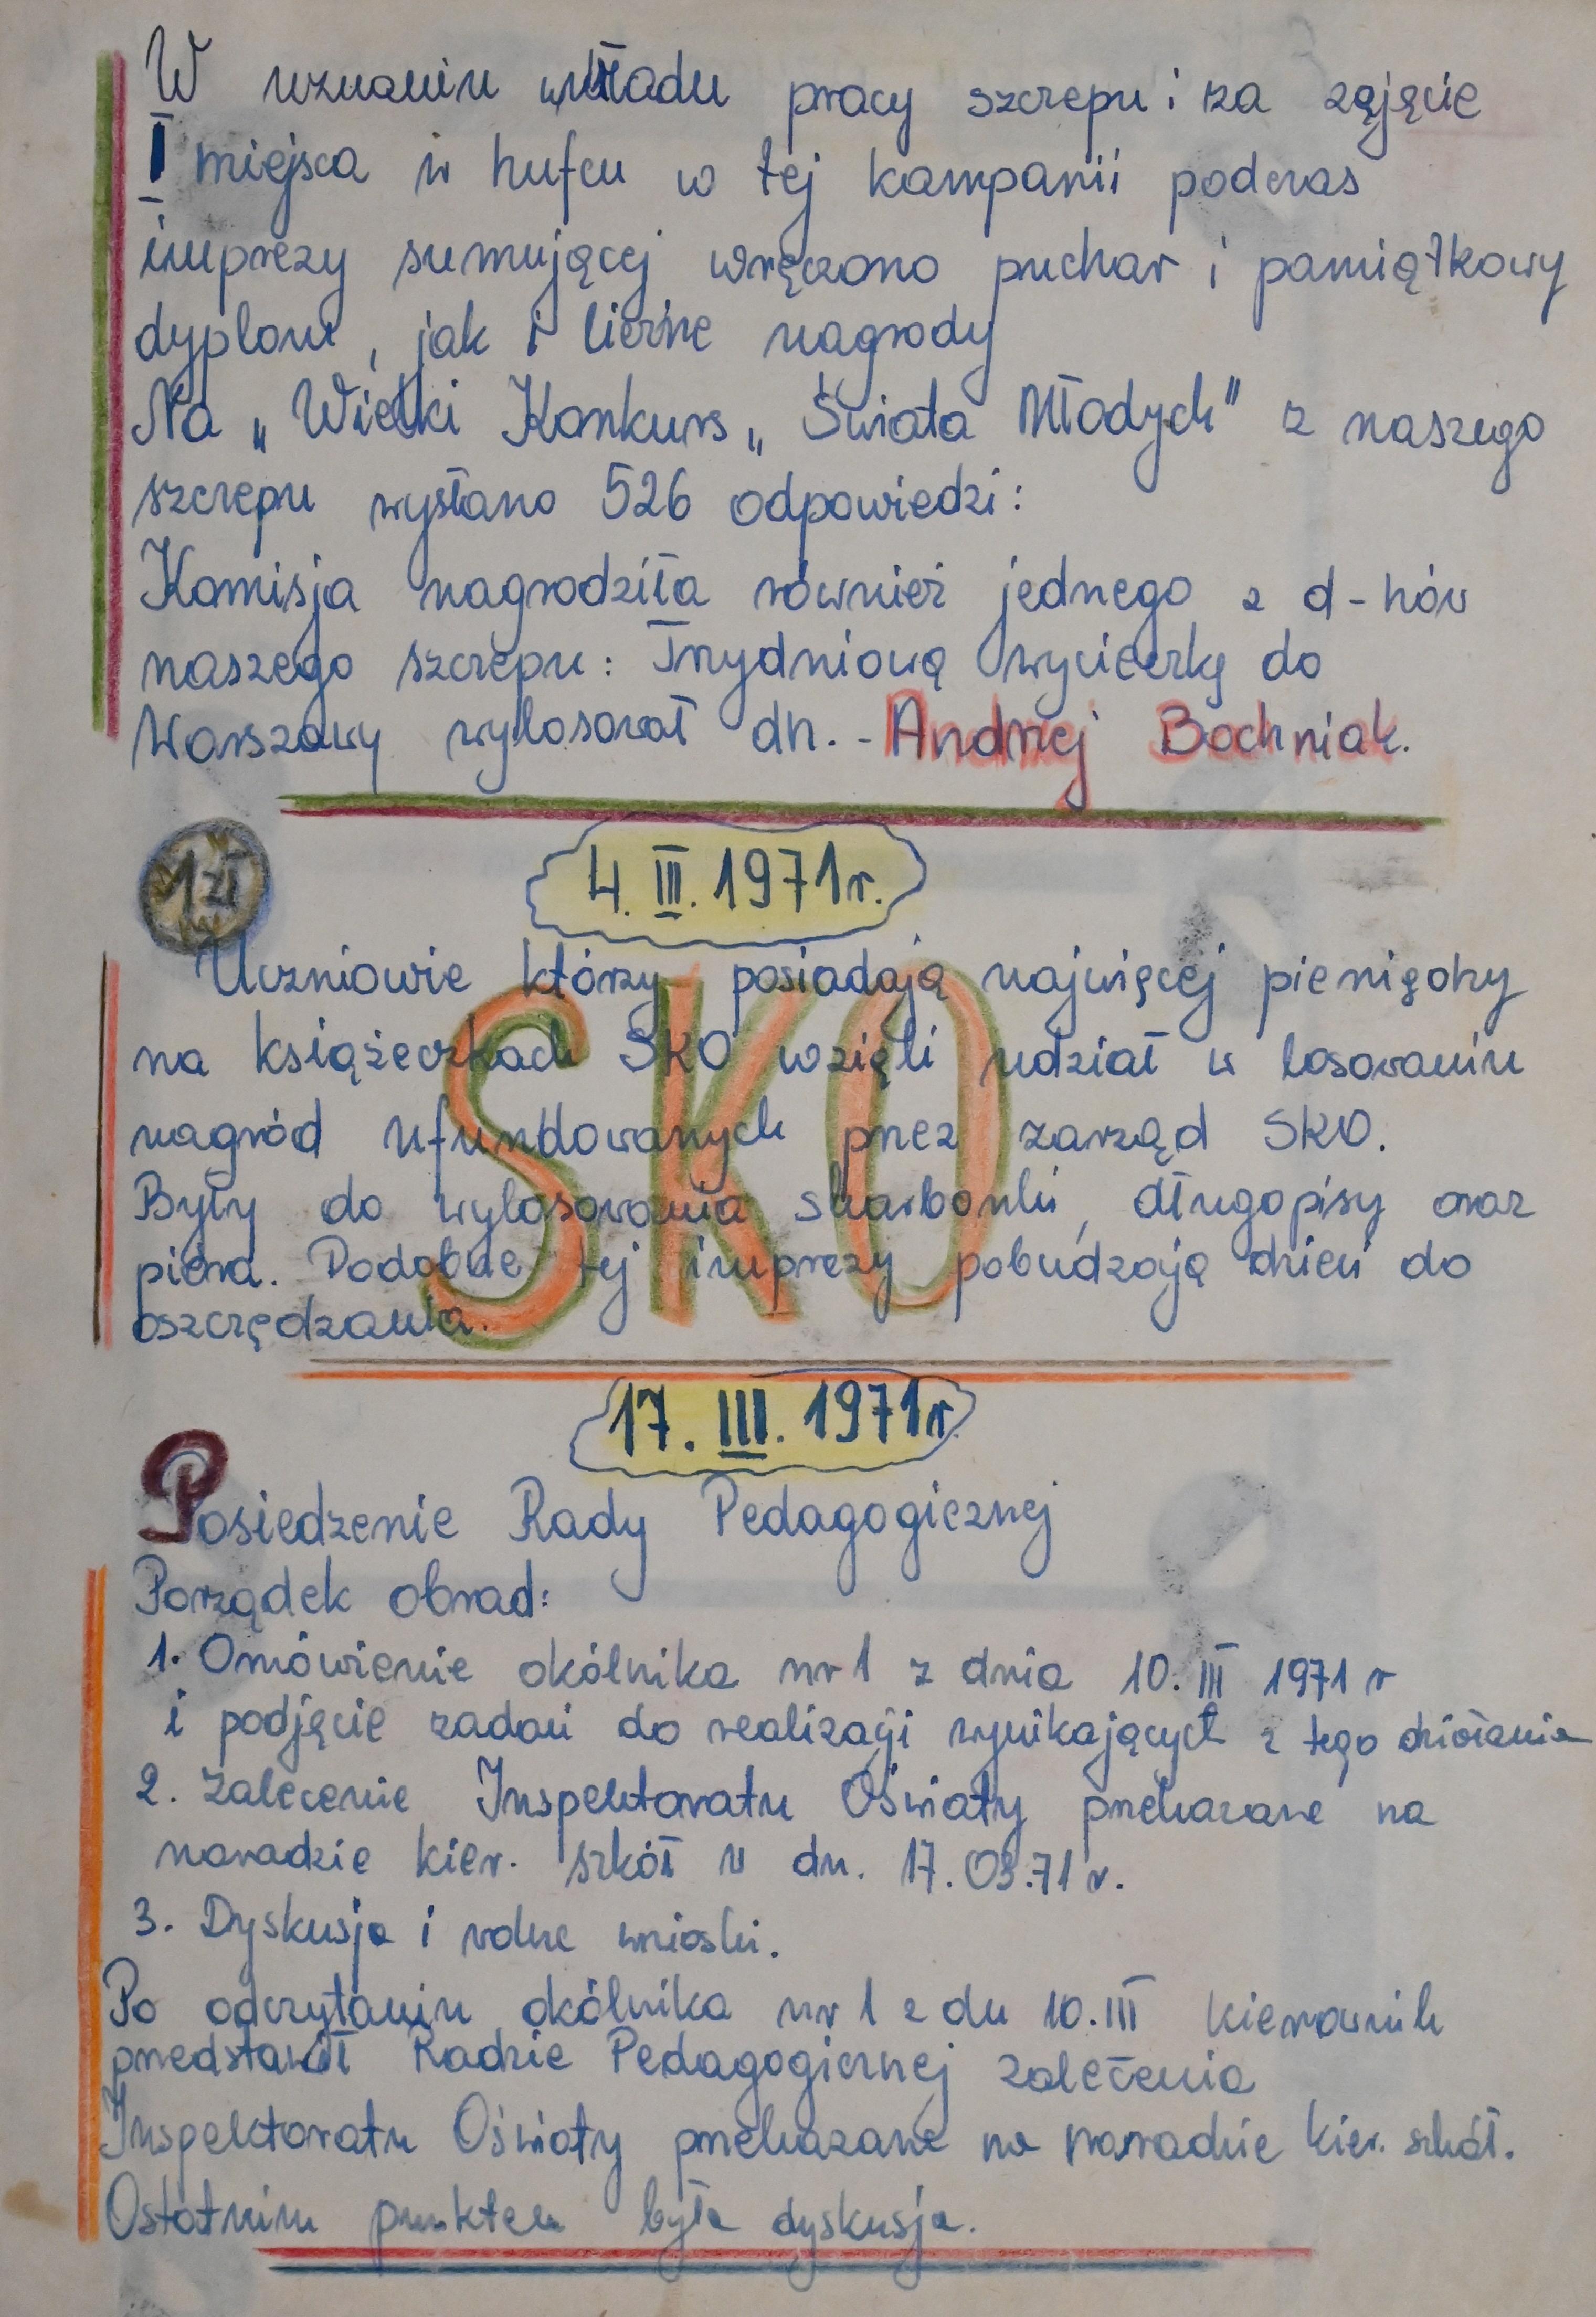 W uznaniu wkładu pracy szczepu i za zajęcie
I miejsca w hufcu w tej kampanii podczas
imprezy sumującej wręczono puchar i pamiątkowy
dyplom, jak i liczne nagrody
Na „Wielki Konkurs „Świata Młodych" z naszego
szczepu wysłano 526 odpowiedzi:
Komisja nagrodziła również jednego z d-hów
naszego szczepu: Trzydniową wycieczkę do
Warszawy wylosował dh. - Andrzej Bochniak.
1 zł
4. III. 1971 r.
Uczniowie którzy posiadają najwięcej pieniędzy
na książeczkach SKO wzięli udział w losowaniu
nagród ufundowanych przez zarząd SKO.
Były do wylosowania skarbonki, długopisy oraz
pióra. Podobne tej imprezy pobudzają dzieci do
oszczędzania.
SKO
17. III. 1971 r.
Posiedzenie Rady Pedagogicznej
Porządek obrad:
1. Omówienie okólnika nr 1 z dnia 10. III 1971 r
i podjęcie zadań do realizacji wynikających z tego działania
2. Zalecenie Inspektoratu Oświaty przekazane na
naradzie kier. szkół w dn. 17.03.71 r.
3. Dyskusja i wolne wnioski.
Po odczytaniu okólnika nr 1 z dn 10.III kierownik
przedstawił Radzie Pedagogicznej zalecenia
Inspektoratu Oświaty przekazane na naradzie kier. szkół.
Ostatnim punktem była dyskusja.